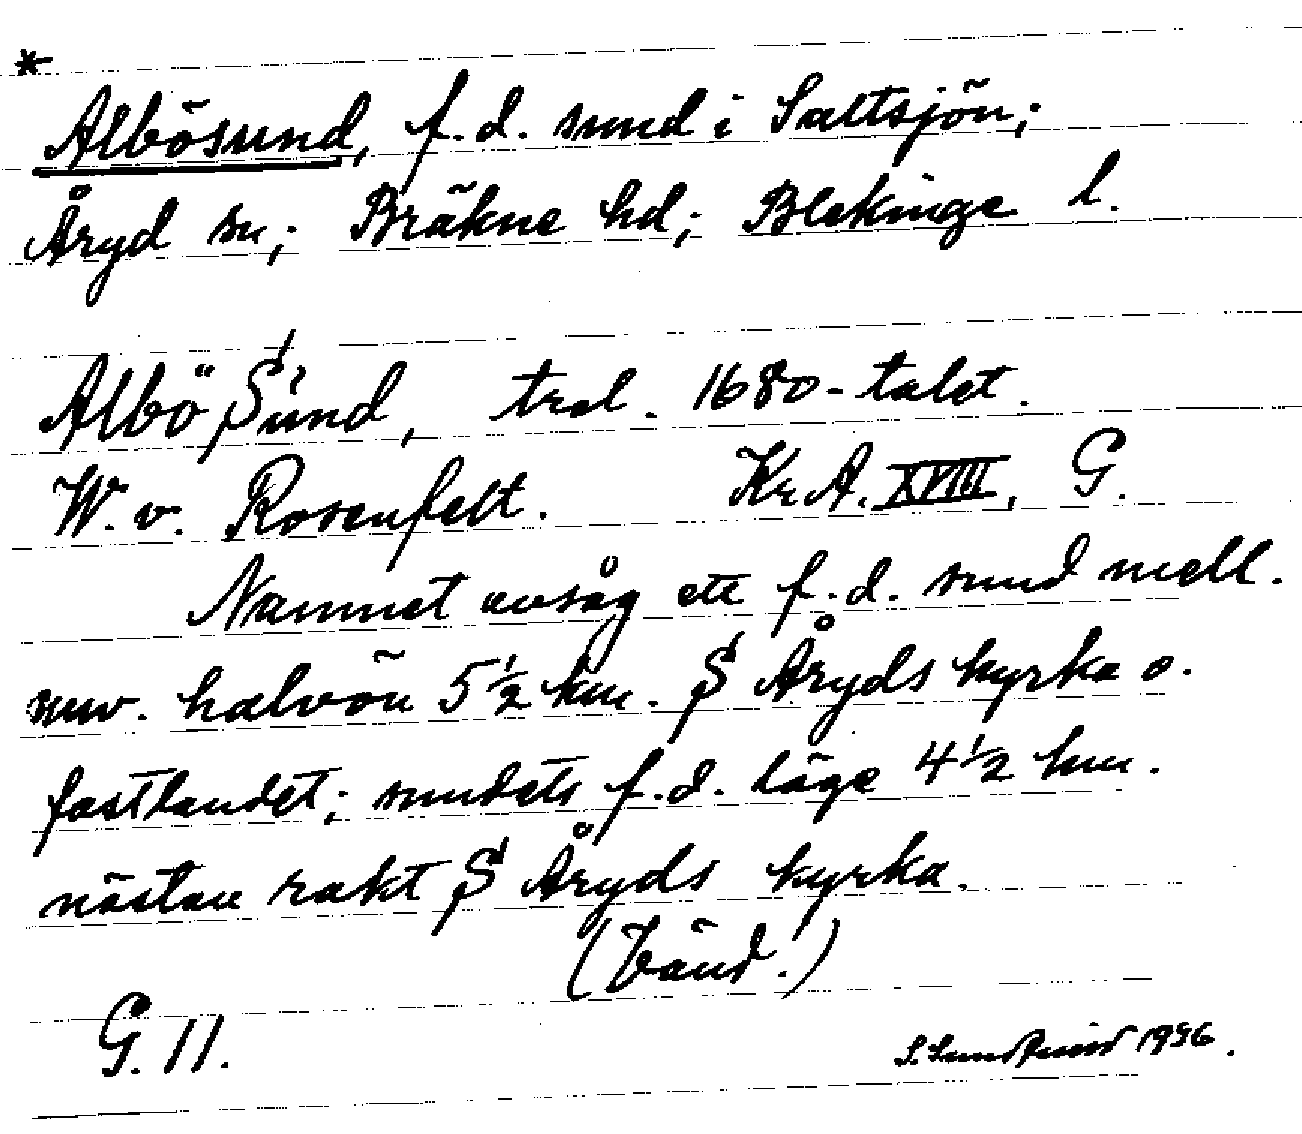 *
Albösund, f.d. sund i Saltsjön;
Åryd sn; Bräkne hd; Blekinge l.
Albö Sund, trol. 1680-talet.
W. v. Rosenfelt. Kr.A. XVIII, G.
Namnet avsåg ett f.d. sund mell.
nuv. halvön 5½ km. S Åryds kyrka o.
fastlandet; sundets f.d. läge 4½ km.
nästan rakt S Åryds kyrka.
(Vänd.)
G. 11.
1936.